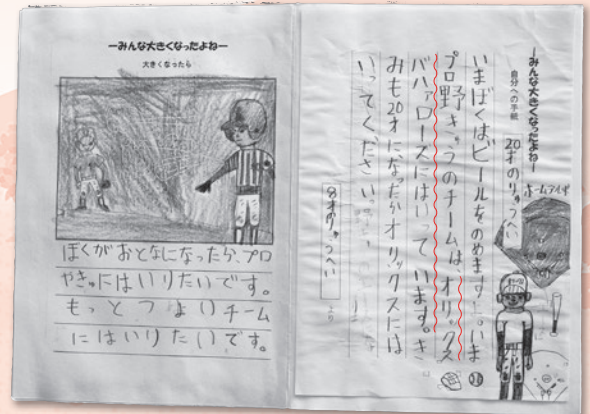 ーみんな大きくなったよねー
大きくなったら
ぼくがおとなになったら、プロ
やきゅにはいりたいです。
もっとつよいチーム
にはいりたいです。
ーみんな大きくなったよねー
自分への手紙
20才のりゅうへい
いまぼくはビールをのめます。いま
プロ野きゅうのチームは、オリックス
バハァローズにはいって います。き
みも20才になったらオリックスには
いってください。
8才のりゅうへい
より